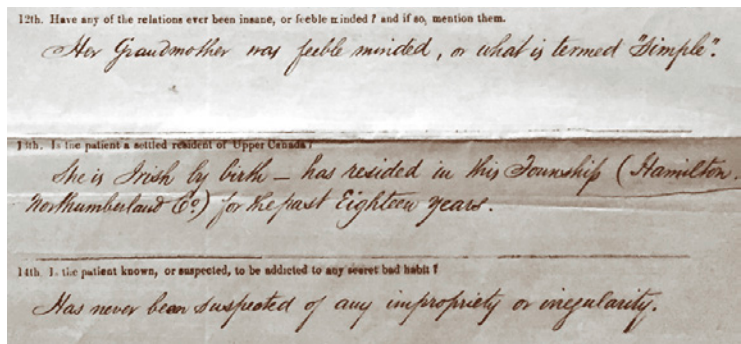 12th. Have any of the relations ever been insane, or feeble minded? and if so, mention them.
Her Grandmother was feeble minded, or what is termed "Simple".
13th. Is the patient a settled resident of Upper Canada?
She is Irish by birth — has resided in this Township (Hamilton.
Northumberland Co.) for the past Eighteen years.
14th. Is the patient known, or suspected, to be addicted to any secret bad habit?
Has never been suspected of any impropriety or irregularity.